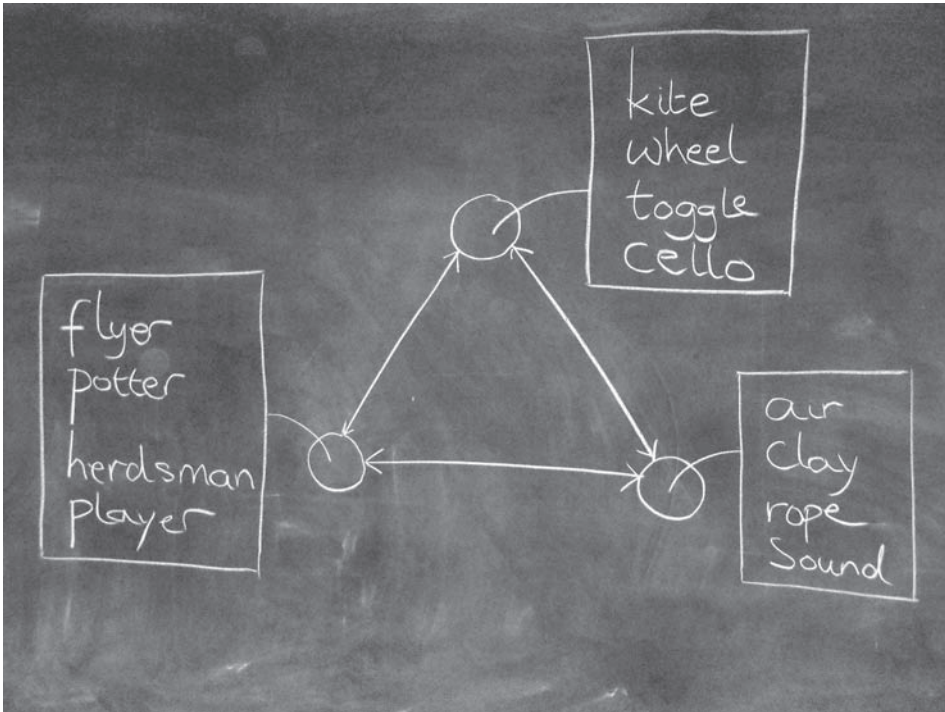 kite
wheel
toggle
cello
flyer
potter
herdsman
player
air
clay
rope
sound